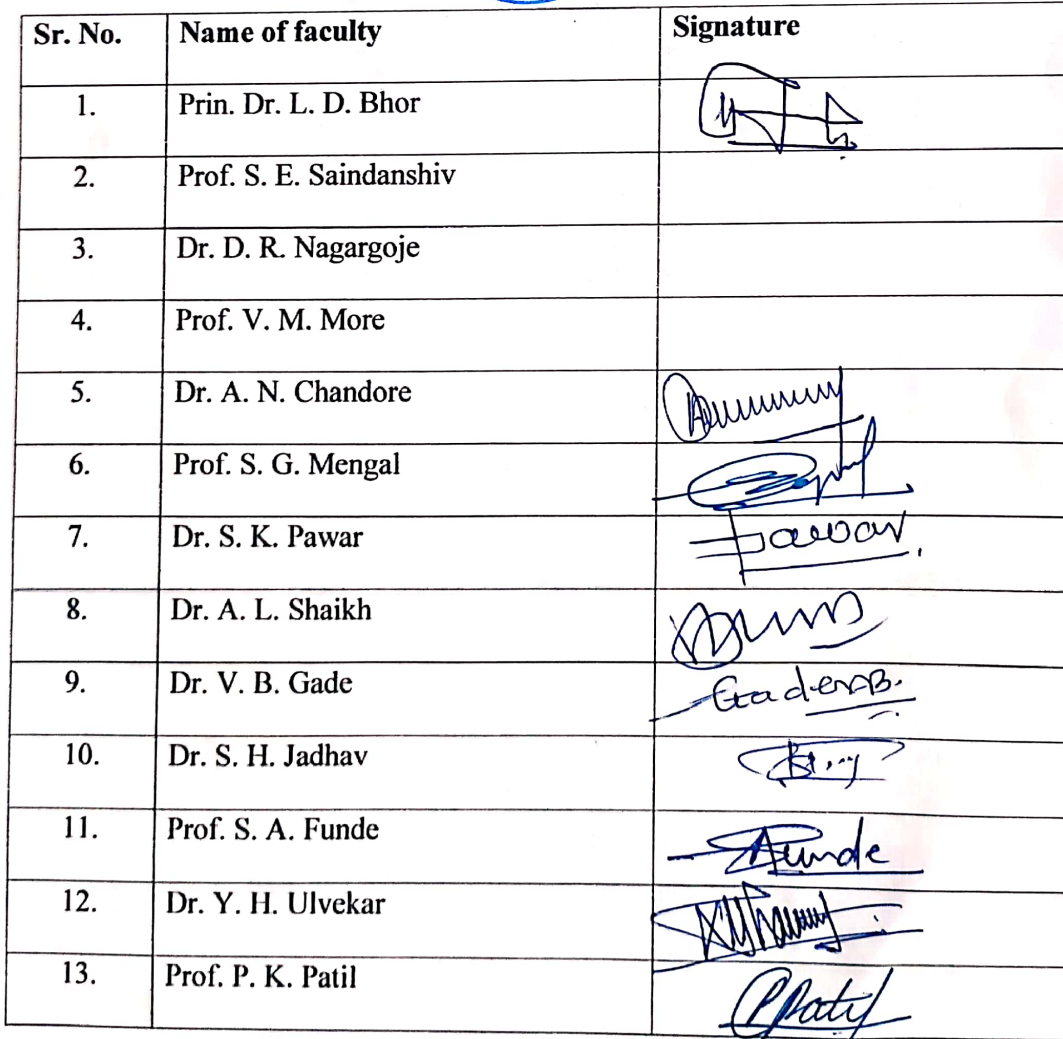 Sr. No. Name of faculty Signature
1. Prin. Dr. L. D. Bhor
2. Prof. S. E. Saindanshiv
3. Dr. D. R. Nagargoje
4. Prof. V. M. More
5. Dr. A. N. Chandore
6. Prof. S. G. Mengal
7. Dr. S. K. Pawar Pawar
8. Dr. A. L. Shaikh
9. Dr. V. B. Gade
10. Dr. S. H. Jadhav
11. Prof. S. A. Funde
12. Dr. Y. H. Ulvekar
13. Prof. P. K. Patil PPatil